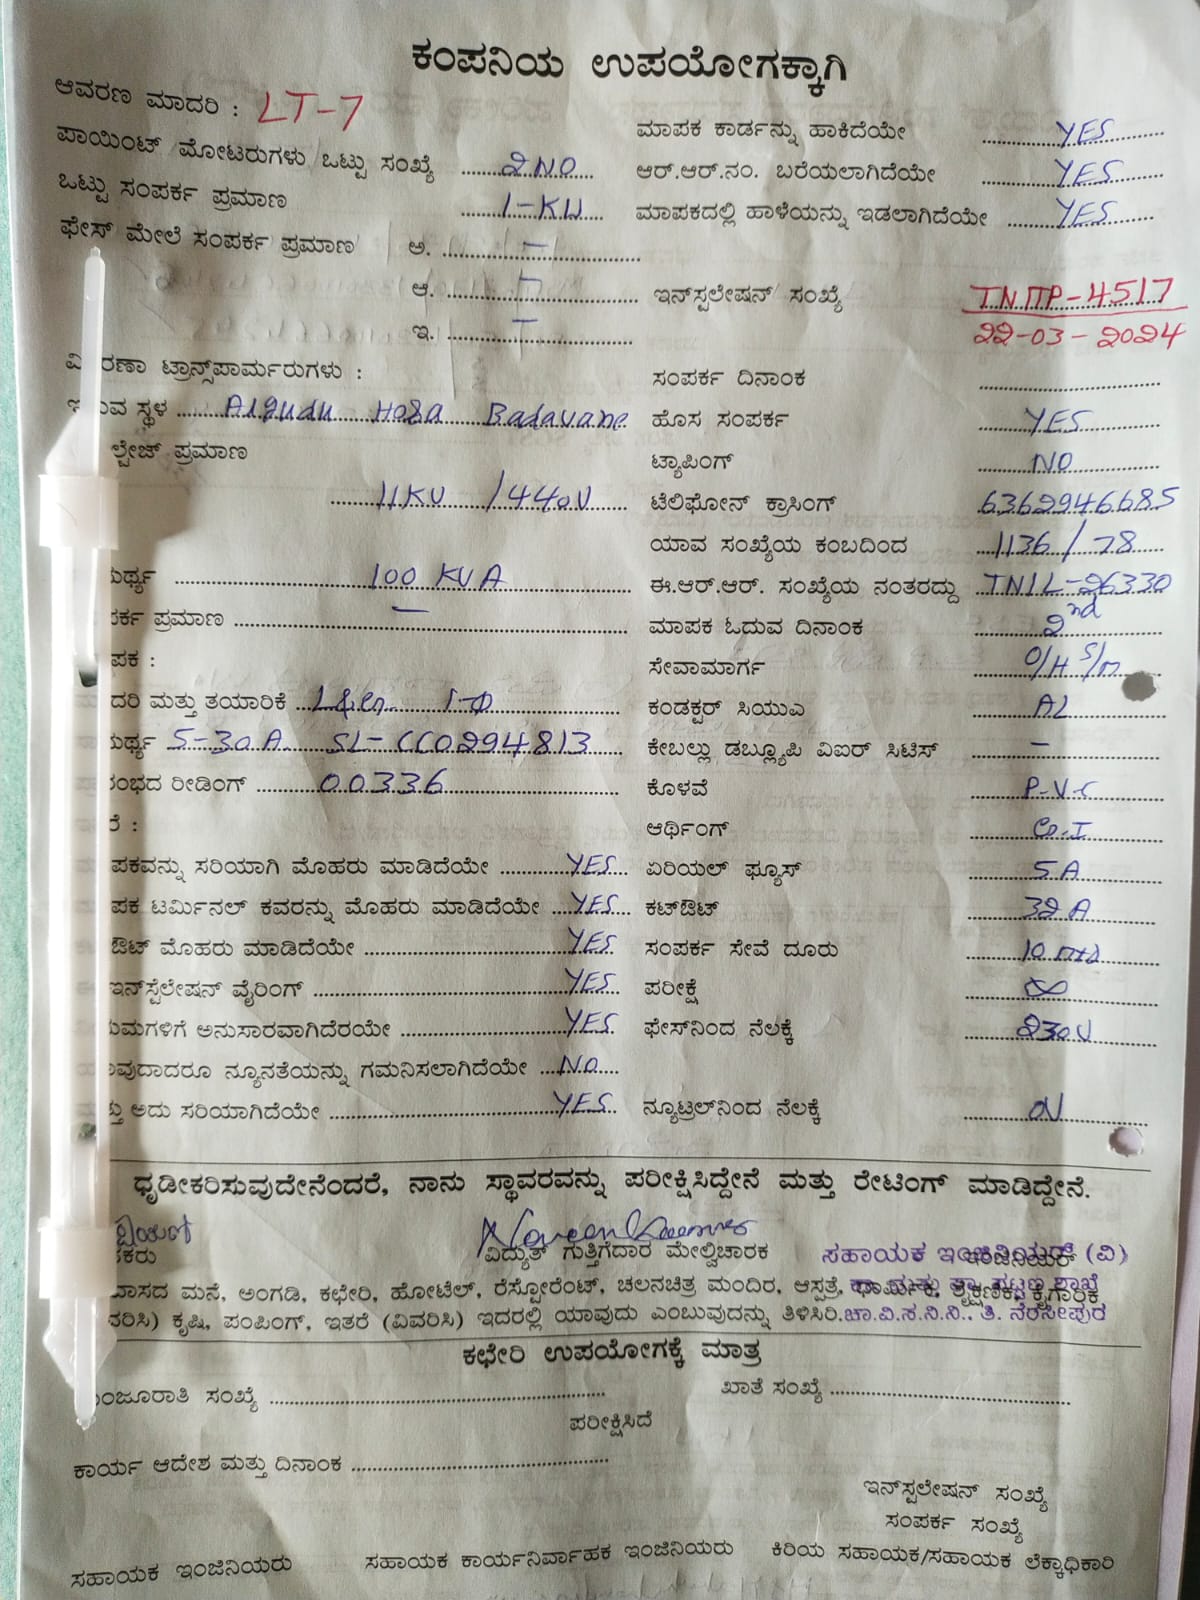 ಕಂಪನಿಯ ಉಪಯೋಗಕ್ಕಾಗಿ
ಆವರಣ ಮಾದರಿ : LT-7
ಮಾಪಕ ಕಾರ್ಡನ್ನು ಹಾಕಿದೆಯೇ YES
ಪಾಯಿಂಟ್ ಮೋಟರುಗಳು/ಒಟ್ಟು ಸಂಖ್ಯೆ 2NO
ಆರ್.ಆರ್.ನಂ. ಬರೆಯಲಾಗಿದೆಯೇ YES
ಒಟ್ಟು ಸಂಪರ್ಕ ಪ್ರಮಾಣ 1-KW
ಮಾಪಕದಲ್ಲಿ ಹಾಳೆಯನ್ನು ಇಡಲಾಗಿದೆಯೇ YES
ಫೇಸ್ ಮೇಲೆ ಸಂಪರ್ಕ ಪ್ರಮಾಣ ಅ. —
ಆ. —
ಇನ್‌ಸ್ಪಲೇಷನ್ ಸಂಖ್ಯೆ TNTP-4517
22-03-2024
ಇ. —
ರಣಾ ಟ್ರಾನ್ಸ್‌ಪಾರ್ಮರುಗಳು :
ಸಂಪರ್ಕ ದಿನಾಂಕ
ಸ್ಥಳ Algudu Hosa Badavane
ಹೊಸ ಸಂಪರ್ಕ YES
ಲ್ಟೇಜ್ ಪ್ರಮಾಣ
ಟ್ಯಾಪಿಂಗ್ NO
11KV /440V
ಟೆಲಿಫೋನ್ ಕ್ರಾಸಿಂಗ್ 6362946685
ಯಾವ ಸಂಖ್ಯೆಯ ಕಂಬದಿಂದ 1136/78
ರ್ಥ್ಯ 100 KVA
ಈ.ಆರ್.ಆರ್. ಸಂಖ್ಯೆಯ ನಂತರದ್ದು TNIL-26330
ರ್ಕ ಪ್ರಮಾಣ —
ಮಾಪಕ ಓದುವ ದಿನಾಂಕ 2nd
ಪಕ :
ಸೇವಾಮಾರ್ಗ O/H S/M
ದರಿ ಮತ್ತು ತಯಾರಿಕೆ L&G 1-Φ
ಕಂಡಕ್ಟರ್ ಸಿಯುಎ AL
ರ್ಥ್ಯ 5-30A. SL-CC0294813
ಕೇಬಲ್ಲು ಡಬ್ಲ್ಯೂಪಿ ವಿಐರ್ ಸಿಟಿಸ್ —
ಂಭದ ರೀಡಿಂಗ್ 00336
ಕೊಳವೆ P-V-C
ರೆ :
ಆರ್ಥಿಂಗ್ G.I
ಪಕವನ್ನು ಸರಿಯಾಗಿ ಮೊಹರು ಮಾಡಿದೆಯೇ YES
ಏರಿಯಲ್ ಫ್ಯೂಸ್ 5A
ಪಕ ಟರ್ಮಿನಲ್ ಕವರನ್ನು ಮೊಹರು ಮಾಡಿದೆಯೇ YES
ಕಟ್‌ಔಟ್ 32A
ಔಟ್ ಮೊಹರು ಮಾಡಿದೆಯೇ YES
ಸಂಪರ್ಕ ಸೇವೆ ದೂರು 10 mtd
ಇನ್‌ಸ್ಪೆಲೇಷನ್ ವೈರಿಂಗ್ YES
ಪರೀಕ್ಷೆ ∞
ಮಗಳಿಗೆ ಅನುಸಾರವಾಗಿದೆರಯೇ YES
ಫೇಸ್‌ನಿಂದ ನೆಲಕ್ಕೆ 230V
ವುದಾದರೂ ನ್ಯೂನತೆಯನ್ನು ಗಮನಿಸಲಾಗಿದೆಯೇ NO
ತು ಅದು ಸರಿಯಾಗಿದೆಯೇ YES
ನ್ಯೂಟ್ರಲ್‌ನಿಂದ ನೆಲಕ್ಕೆ 0V
ಧೃಡೀಕರಿಸುವುದೇನೆಂದರೆ, ನಾನು ಸ್ಥಾವರವನ್ನು ಪರೀಕ್ಷಿಸಿದ್ದೇನೆ ಮತ್ತು ರೇಟಿಂಗ್ ಮಾಡಿದ್ದೇನೆ.
NaveenKumar
ಕರು ವಿದ್ಯುತ್ ಗುತ್ತಿಗೆದಾರ ಮೇಲ್ವಿಚಾರಕ ಸಹಾಯಕ ಇಂಜಿನಿಯರ್ (ವಿ)
ವಾಸದ ಮನೆ, ಅಂಗಡಿ, ಕಛೇರಿ, ಹೋಟೆಲ್, ರೆಸ್ಟೋರೆಂಟ್, ಚಲನಚಿತ್ರ ಮಂದಿರ, ಆಸ್ಪತ್ರೆ, ಧಾರ್ಮಿಕ, ಶೈಕ್ಷಣಿಕ, ಕೈಗಾರಿಕೆ
ವರಿಸಿ) ಕೃಷಿ, ಪಂಪಿಂಗ್, ಇತರೆ (ವಿವರಿಸಿ) ಇದರಲ್ಲಿ ಯಾವುದು ಎಂಬುವುದನ್ನು ತಿಳಿಸಿರಿ. ಚಾ.ವಿ.ಸ.ನಿ.ನಿ., ತಿ. ನರಸೀಪುರ
ಕಛೇರಿ ಉಪಯೋಗಕ್ಕೆ ಮಾತ್ರ
ಂಜೂರಾತಿ ಸಂಖ್ಯೆ
ಖಾತೆ ಸಂಖ್ಯೆ
ಪರೀಕ್ಷಿಸಿದೆ
ಕಾರ್ಯ ಆದೇಶ ಮತ್ತು ದಿನಾಂಕ
ಇನ್‌ಸ್ಪಲೇಷನ್ ಸಂಖ್ಯೆ
ಸಂಪರ್ಕ ಸಂಖ್ಯೆ
ಸಹಾಯಕ ಇಂಜಿನಿಯರು ಸಹಾಯಕ ಕಾರ್ಯನಿರ್ವಾಹಕ ಇಂಜಿನಿಯರು ಕಿರಿಯ ಸಹಾಯಕ/ಸಹಾಯಕ ಲೆಕ್ಕಾಧಿಕಾರಿ